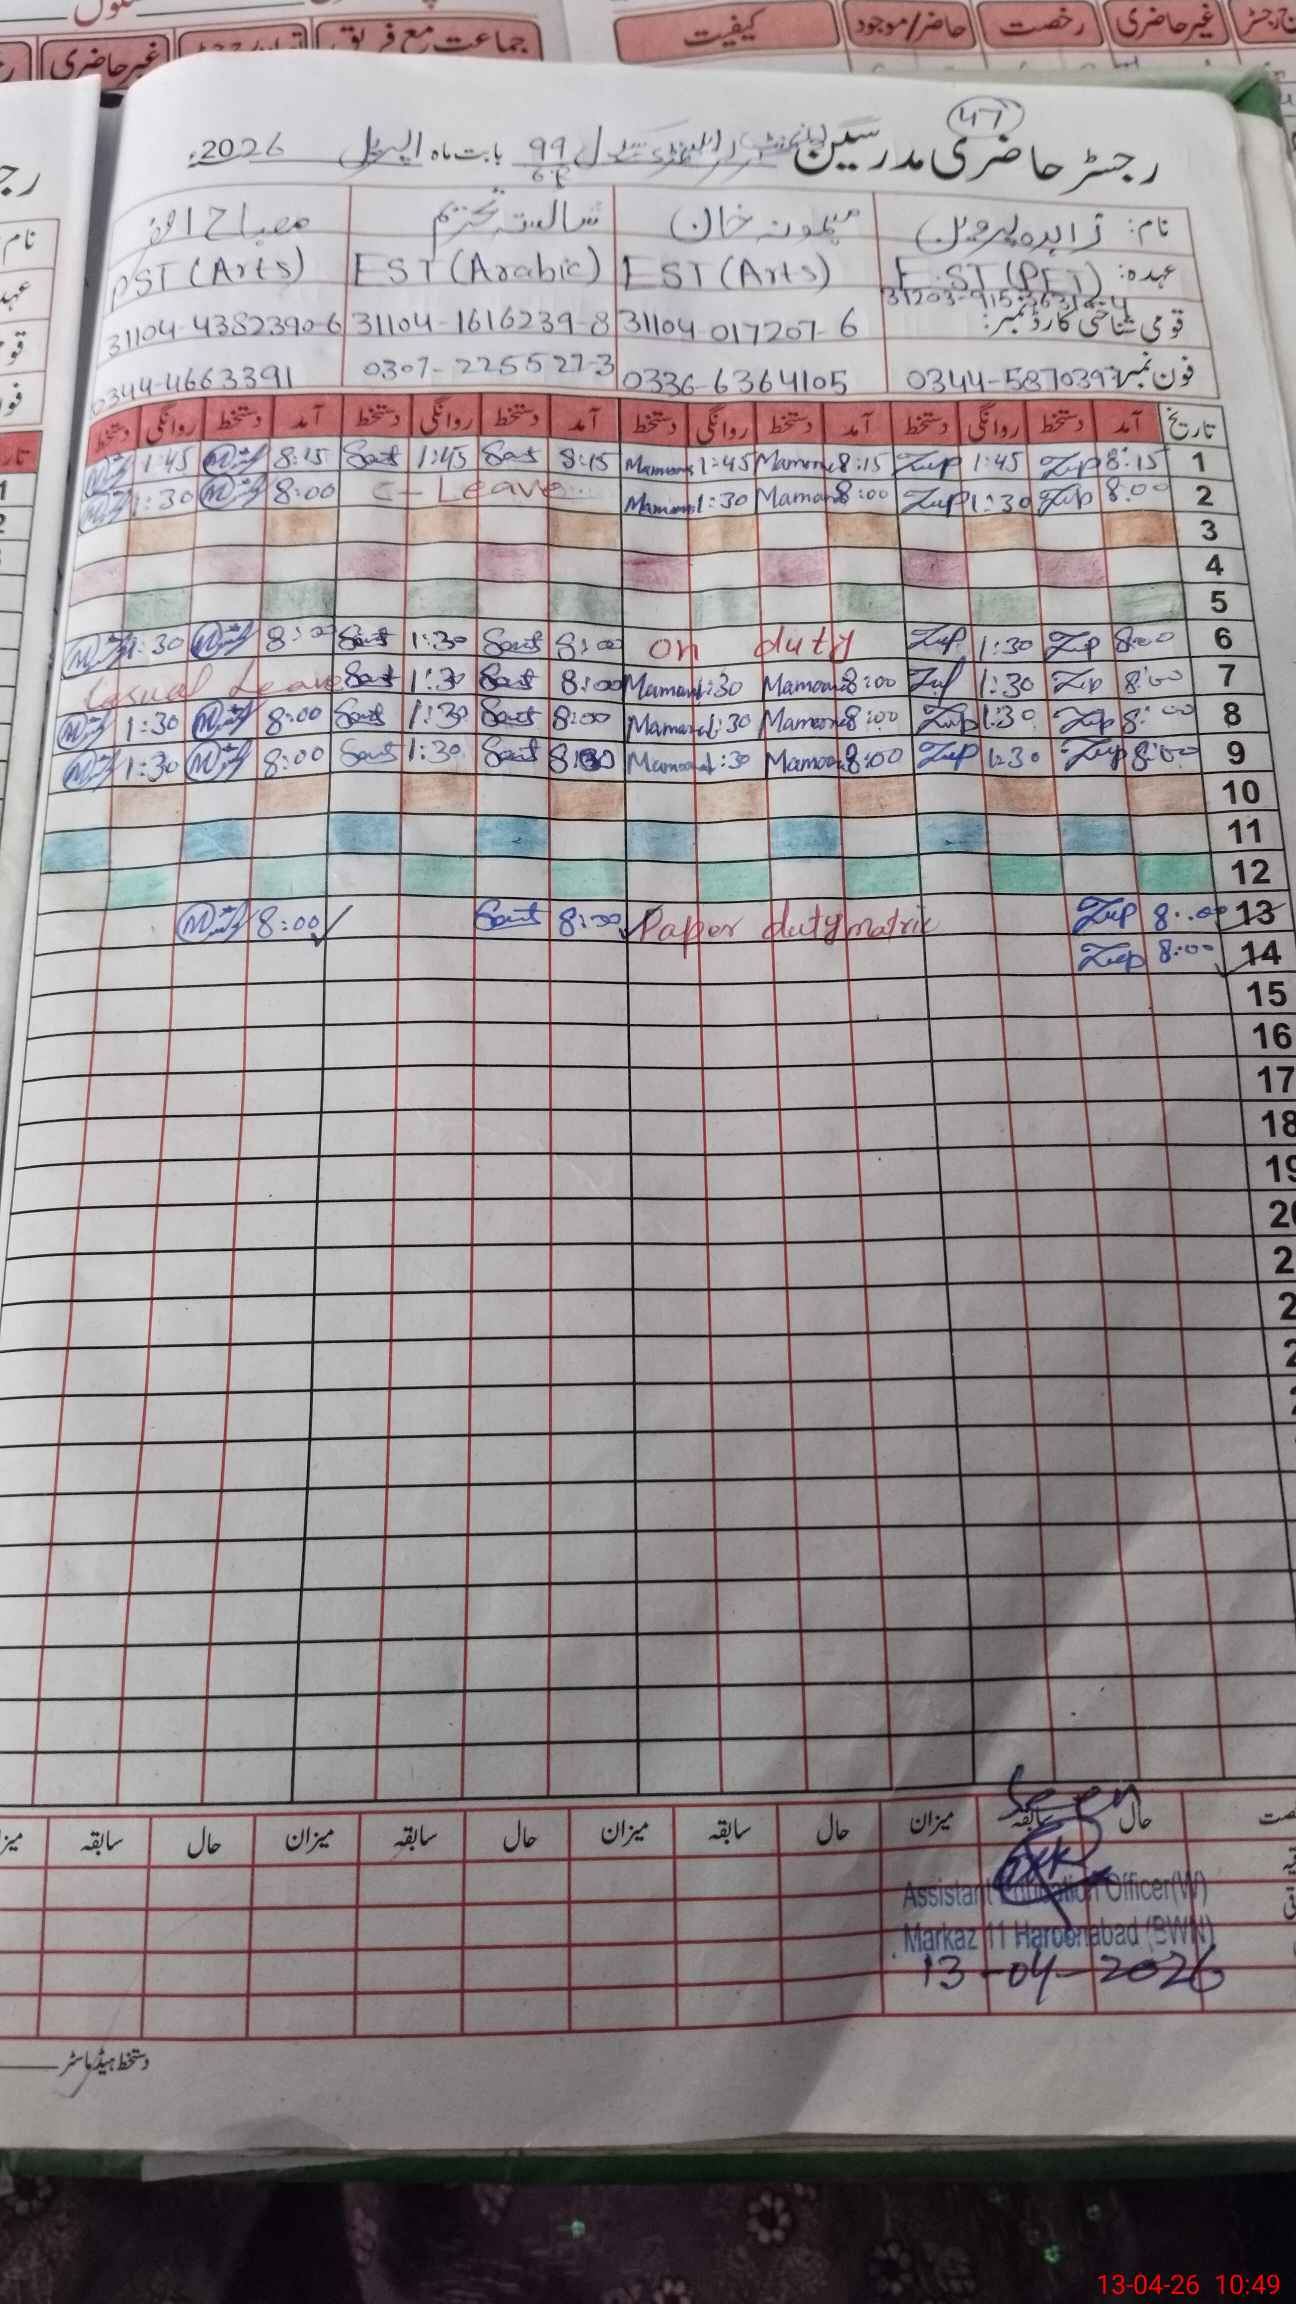 کیفیت حاضر/موجود رخصت غیر حاضری
جماعت مع فریق غیر حاضری
47
رجسٹر حاضری مدرسین 99/6R بابت ماہ اپریل 2026ء
نام: زاہدہ پروین میمونہ خان شائستہ تحریم مصباح
عہدہ: E.ST(PET) EST(Arts) EST(Arabic) PST(Arts)
قومی شناختی کارڈ نمبر: 31104-017207-6 31104-1616239-8 31104-4382390-6
فون نمبر 0344-587039 0336-6364105 0307-2255273 0344-4663391
تاریخ آمد دستخط روانگی دستخط آمد دستخط روانگی دستخط آمد دستخط روانگی دستخط آمد دستخط روانگی دستخط
1 8:15 Zup 1:45 Zup 8:15 Mamona 1:45 Mamona 8:15 1:45 8:15 1:45
2 8:00 Zup 1:30 Zup 8:00 Mamona 1:30 Mamona C-Leave 8:00 1:30
3
4
5
6 8:00 Zup 1:30 Zup on duty 8:00 1:30 8:00 1:30
7 8:00 Zup 1:30 Zup 8:00 Mamona 1:30 Mamona 8:00 1:30 Casual Leave
8 8:00 Zup 1:30 Zup 8:00 Mamona 1:30 Mamona 8:00 1:30 8:00 1:30
9 8:00 Zup 1:30 Zup 8:00 Mamona 1:30 Mamona 8:00 1:30 8:00 1:30
10
11
12
13 8:00 Zup Paper duty matric 8:00 8:00
14 8:00 Zup
15
16
17
18
19
حال سابقہ میزان حال سابقہ میزان حال سابقہ میزان حال سابقہ
Seen
Assistant Education Officer(W)
Markaz 11 Haroonabad (BWN)
13-04-2026
دستخط ہیڈ ماسٹر
13-04-26 10:49